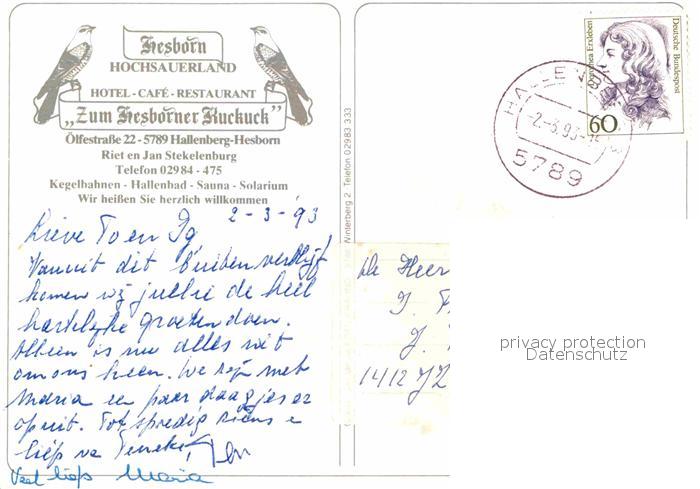 Hesborn
HOCHSAUERLAND
HOTEL - CAFÉ - RESTAURANT
„Zum Hesborner Kuckuck"
Ölfestraße 22 - 5789 Hallenberg-Hesborn
Riet en Jan Stekelenburg
Telefon 02984 - 475
Kegelbahnen - Hallenbad - Sauna - Solarium
Wir heißen Sie herzlich willkommen
2-3-'93
Lieve To en
Vanuit dit buiten verblijf
komen wij jullie de heel
hartelijke groeten doen.
Alleen is nu alles wit
om ons heen. We zijn met
Maria een paar daagjes er
op uit. Tot spoedig ziens
liefs va Tineke,
Veel liefs Maria
Winterberg 2 Telefon 02983 333
De Heer
J.
1412 JZ
Dorothea Erxleben
Deutsche Bundespost
60
HALLENBERG
-2.-3.93-
5789
privacy protection
Datenschutz